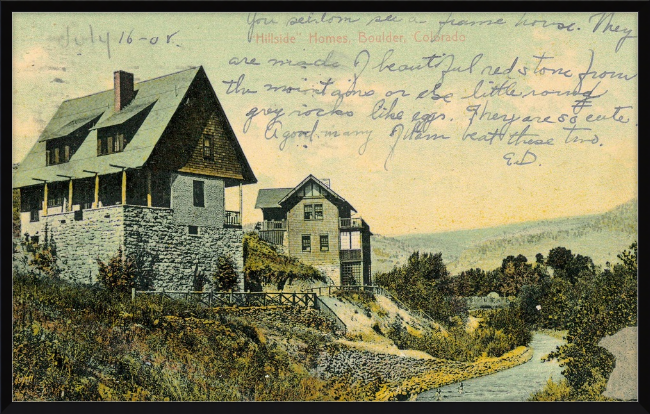 You seldom see a frame house. They
July 16-08.
Hillside Homes, Boulder, Colorado
are made of beautiful red stone from
the mountains or else little round
grey rocks like eggs. They are so cute.
A good many of them beat these two.
E.D.